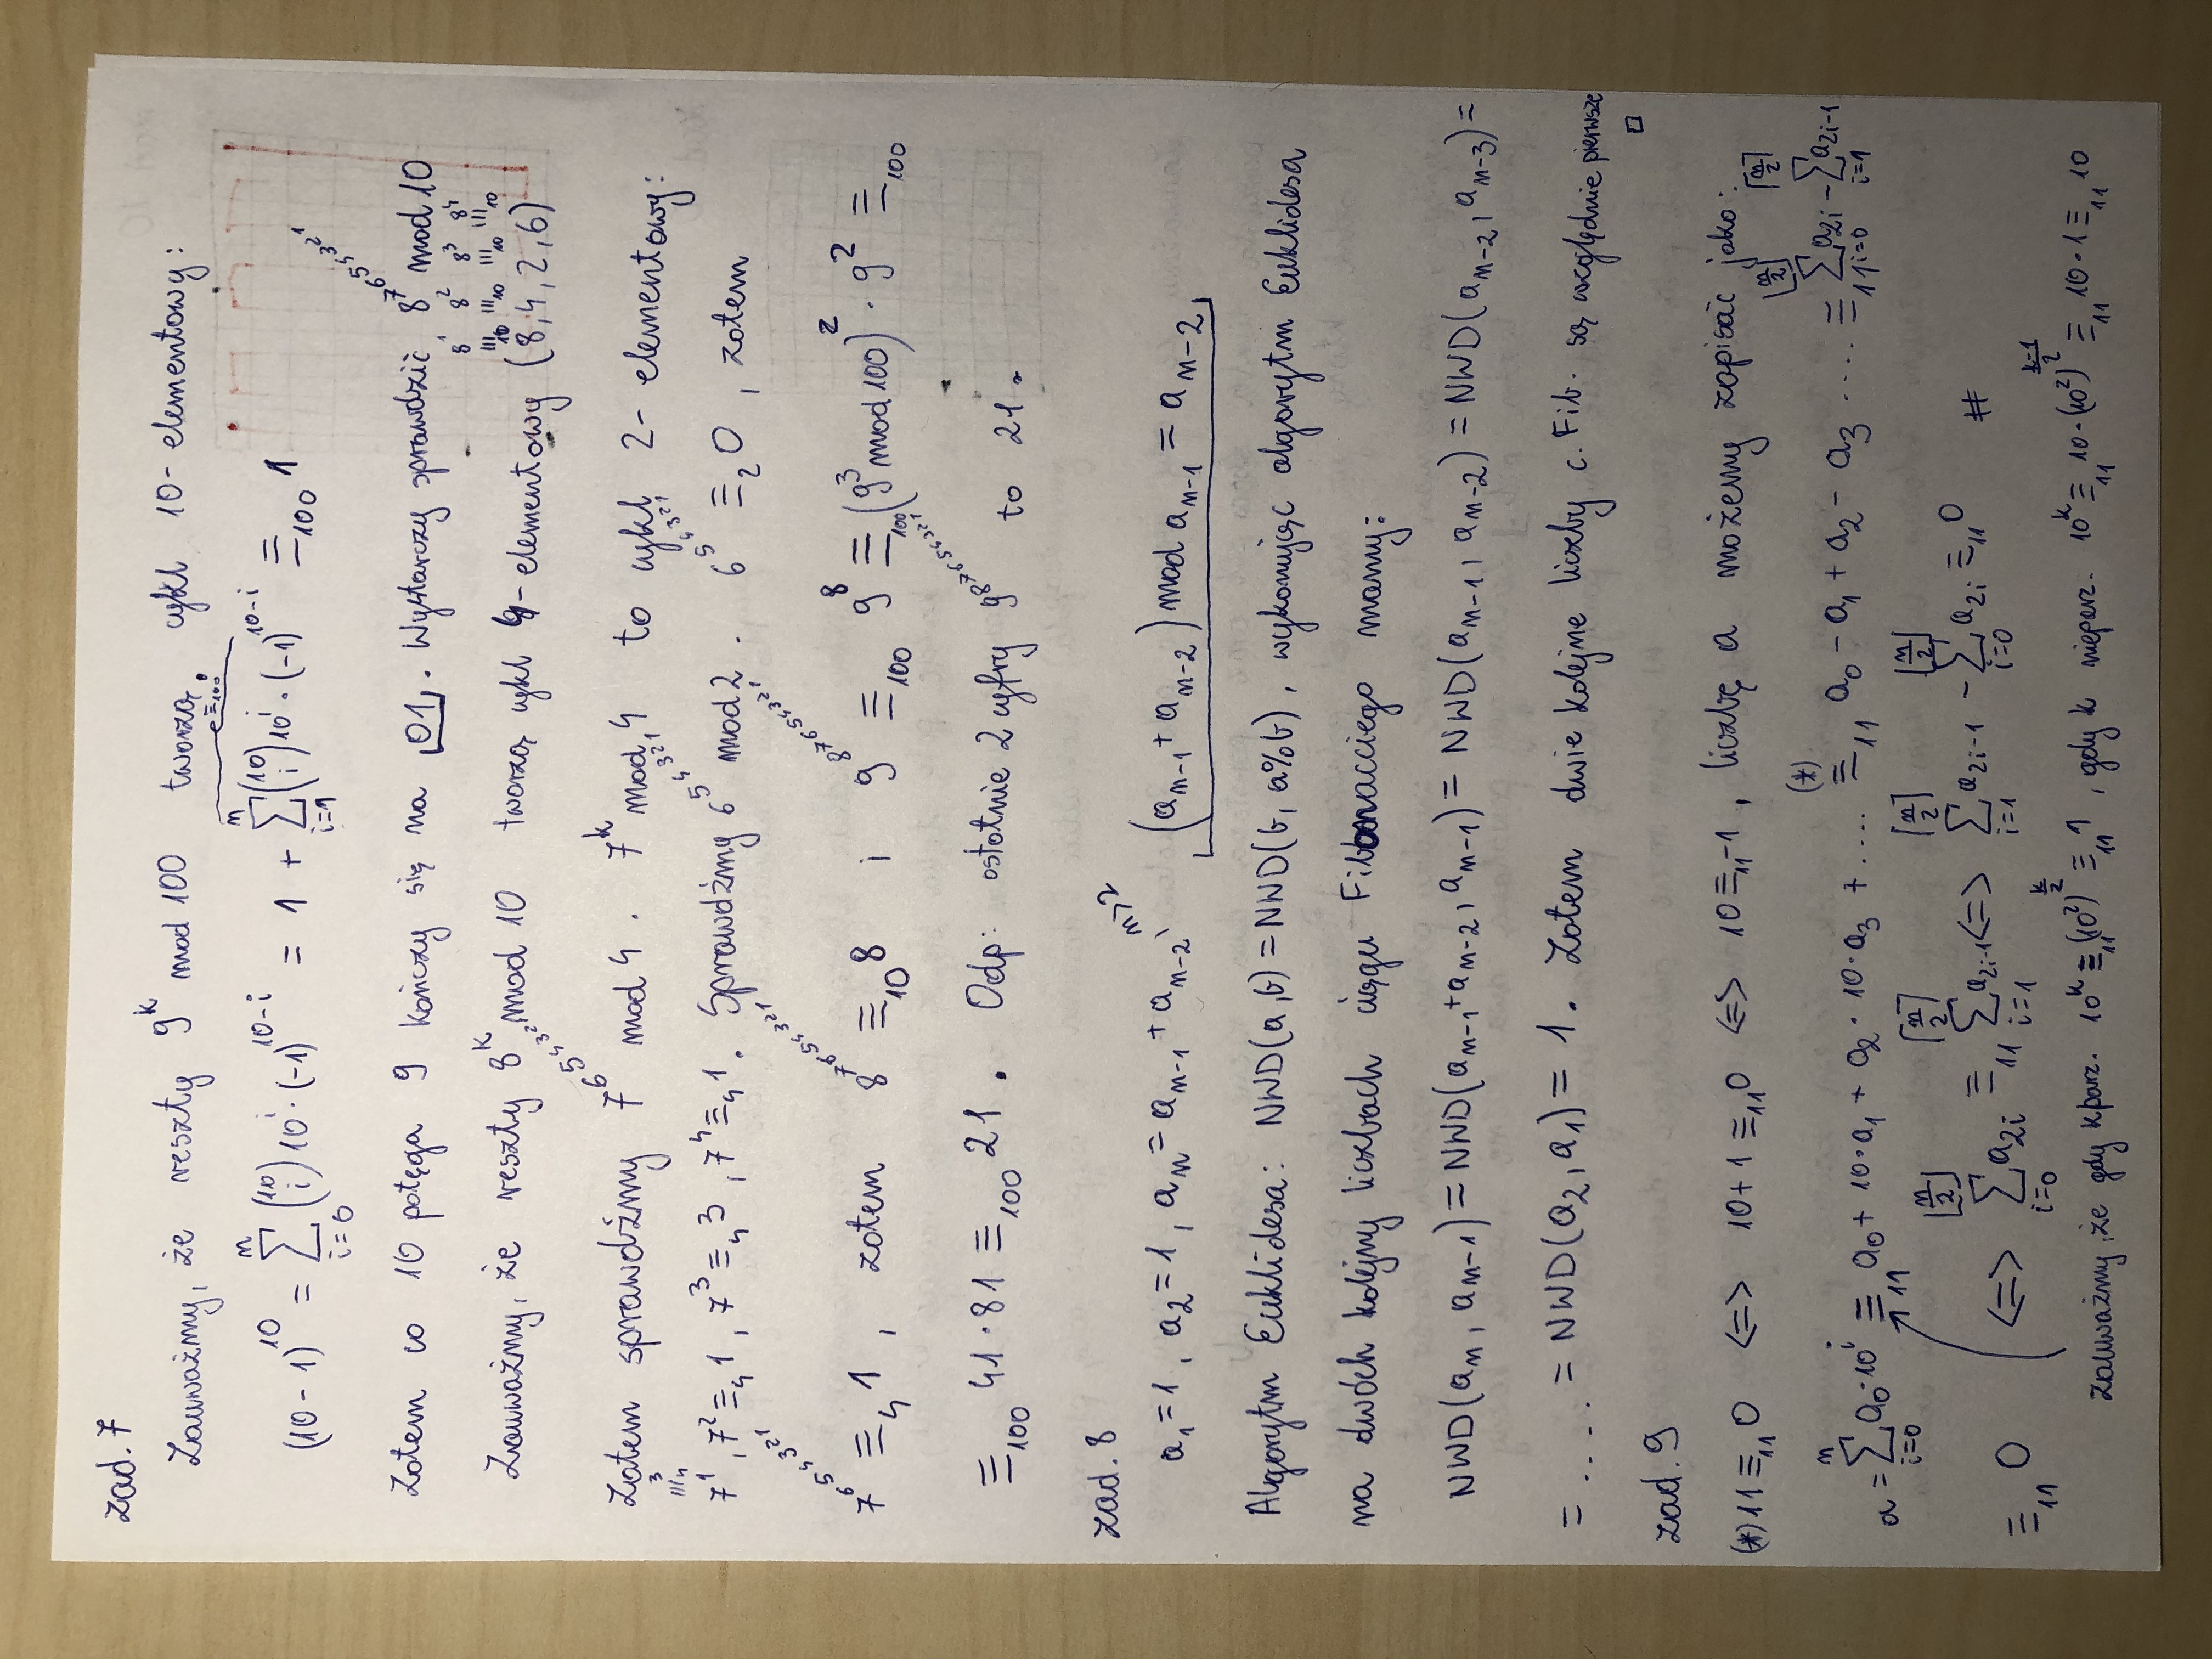 zad. 7
Zauważmy, że reszty 9^k mod 100 tworzą cykl 10-elementowy:
(10-1)^10 = ∑_{i=0}^{n} (10 i) 10^i · (-1)^{10-i} = 1 + ∑_{i=1}^{n} (10 i) 10^i · (-1)^{10-i} ≡_100 1
Zatem co 10 potęga 9 kończy się na 01. Wystarczy sprawdzić 8^7^6^5^4^3^2^1 mod 10
8^1 8^2 8^3 8^4
|||_10 |||_10 |||_10 |||_10
Zauważmy, że reszty 8^k mod 10 tworzą cykl 4-elementowy (8,4,2,6)
Zatem sprawdźmy 7^6^5^4^3^2^1 mod 4. 7^k mod 4 to cykl 2-elementowy:
3
|||_4
7^1, 7^2 ≡_4 1, 7^3 ≡_4 3, 7^4 ≡_4 1. Sprawdźmy 6^5^4^3^2^1 mod 2. 6^5^4^3^2^1 ≡_2 0, zatem
7^6^5^4^3^2^1 ≡_4 1, zatem 8^7^6^5^4^3^2^1 ≡_10 8 i 9^8^7^6^5^4^3^2^1 ≡_100 9^8 ≡_100 (9^3 mod 100)^2 · 9^2 ≡_100
≡_100 41·81 ≡_100 21. Odp: ostatnie 2 cyfry 9^8^7^6^5^4^3^2^1 to 21.
zad. 8
a_1=1, a_2=1, a_n=a_{n-1}+a_{n-2}, n>2 (a_{n-1}+a_{n-2}) mod a_{n-1} = a_{n-2}
Algorytm Euklidesa: NWD(a,b)=NWD(b, a%b), wykonując algorytm Euklidesa
na dwóch kolejny liczbach ciągu Fibonacciego mamy:
NWD(a_n, a_{n-1}) = NWD(a_{n-1}+a_{n-2}, a_{n-1}) = NWD(a_{n-1}, a_{n-2}) = NWD(a_{n-2}, a_{n-3}) =
= .... = NWD(a_2, a_1) = 1. Zatem dwie kolejne liczby c. Fib. są względnie pierwsze
□
zad. 9
(*) 11 ≡_11 0 <=> 10+1 ≡_11 0 <=> 10 ≡_11 -1, liczbę a możemy zapisać jako:
a = ∑_{i=0}^{n} a_0·10^i ≡_11 a_0 + 10·a_1 + a_2 · 10·a_3 + .... ≡_11^(*) a_0 - a_1 + a_2 - a_3 .... ≡_11 ∑_{i=0}^{⌊n/2⌋} a_{2i} - ∑_{i=1}^{⌈n/2⌉} a_{2i-1}
≡_11 0 <=> ∑_{i=0}^{⌊n/2⌋} a_{2i} ≡_11 ∑_{i=1}^{⌈n/2⌉} a_{2i-1} <=> ∑_{i=1}^{⌈n/2⌉} a_{2i-1} - ∑_{i=0}^{⌊n/2⌋} a_{2i} ≡_11 0 #
zauważmy, że gdy k parz. 10^k ≡_11 (10^2)^{k/2} ≡_11 1, gdy k nieparz. 10^k ≡_11 10·(10^2)^{(k-1)/2} ≡_11 10·1 ≡_11 10